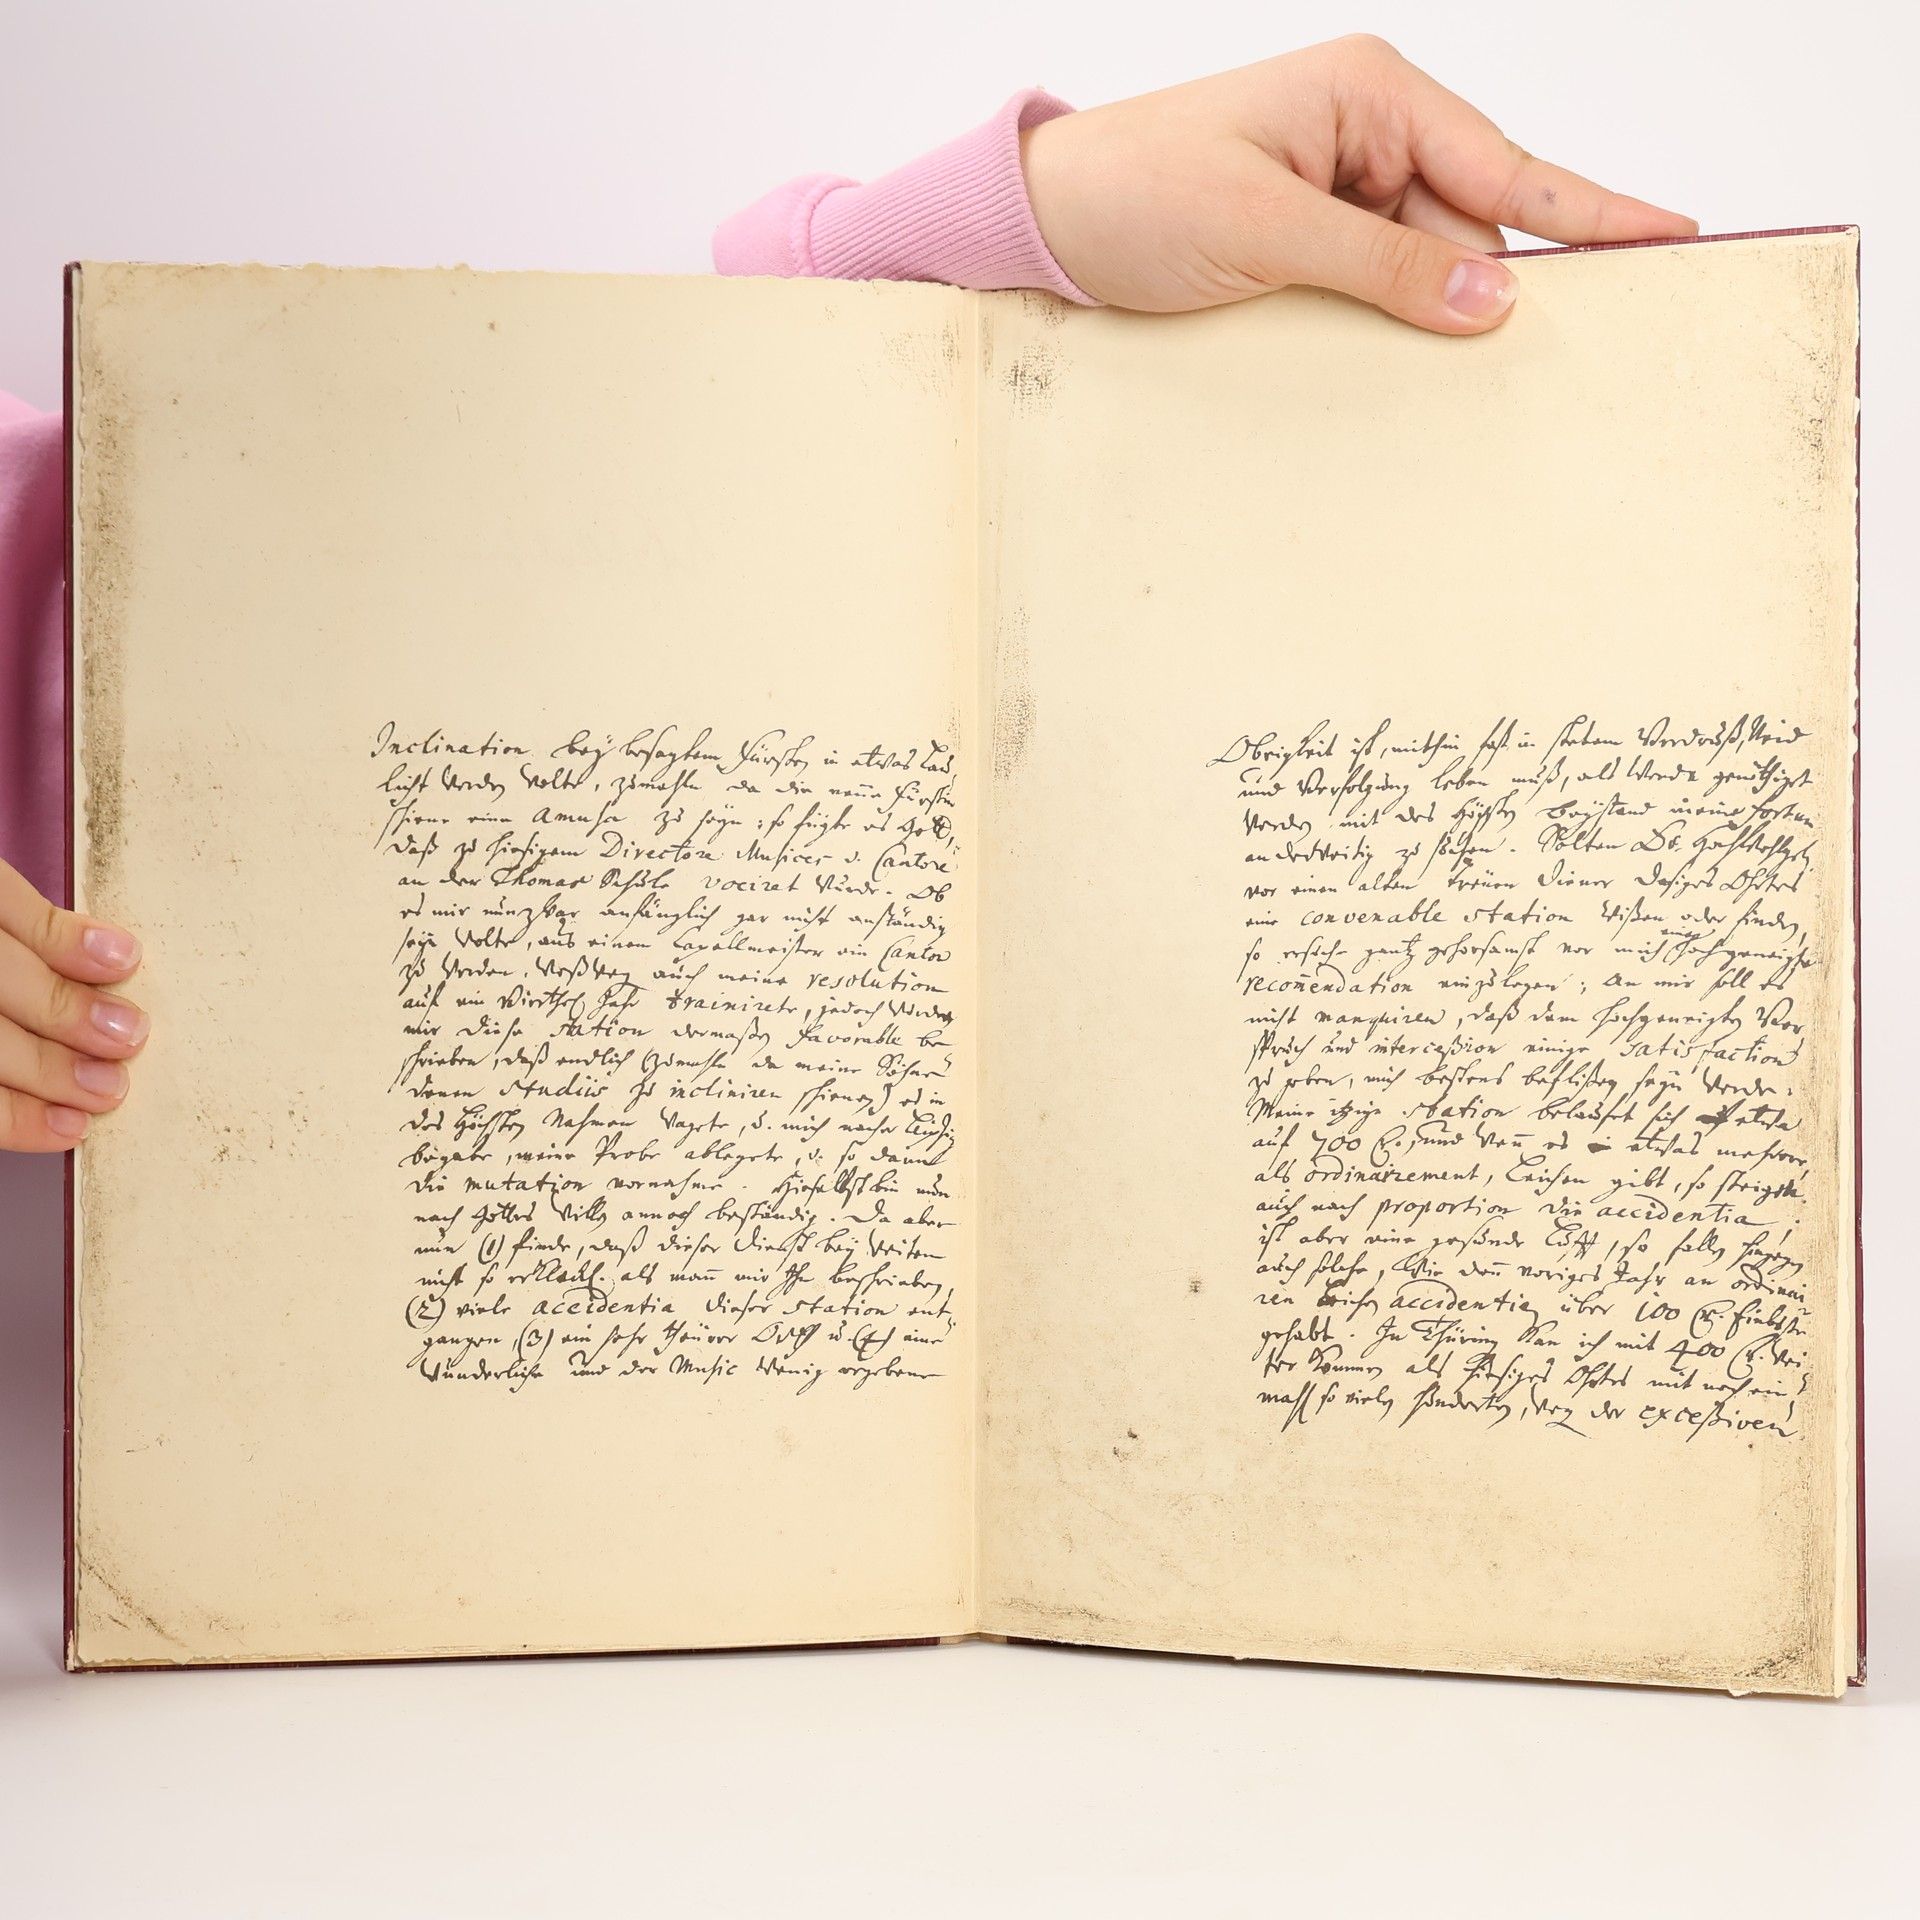 Inclination bey besagtem Fürsten in etwas lau
licht werden wolte, zumahln da die neüe Fürstin
schiene eine amusa zu seyn: so fügte es Gott,
daß zu hiesigem Directore Musices u. Cantore
an der Thomas Schule vociret wurde. Ob
es mir nun zwar anfänglich gar nicht anständig
seyn wolte, aus einem Capellmeister ein Cantor
zu werden, weßweg auch meine resolution
auf ein vierthel Jahr trainirete, jedoch wurde
mir diese station dermaßen favorable be
schrieben, daß endlich (zumahln da meine Söhne
denen studiis zu incliniren schienen) es in
des Höchsten Nahmen wagete, u. mich nacher Leipzig
begabe, meine Probe ablegete, u. so dann
die mutation vornahme. Hieselbst bin nun
nach Gottes Willen annoch beständig. Da aber
nun (1) finde, daß dieser Dienst bey weitem
nicht so erklecklich als mann mir Ihn beschrieben,
(2) viele accidentia dieser station ent
gangen, (3) ein sehr theürer Orth u. (4) eine
wunderliche und der Music wenig ergebene
Obrigkeit ist, mithin fast in stetem Verdruß, Neid
und Verfolgung leben muß, als werde genöthiget
werden mit des Höchsten Beystand meine Fortun
anderweitig zu suchen. Solten Eu. Hochwohlgeb.
vor einen alten treüen Diener dasiges Ohrtes
eine convenable station wißen oder finden,
so ersuche gantz gehorsamst vor mich eine hochgeneigte
recommendation einzulegen; an mir soll es
nicht manquiren, daß dem hochgeneigten Vor
spruch und interceßion einige satisfaction
zu geben, mich bestens beflißen seyn werde.
Meine itzige station belaufet sich etwa
auf 700 rthl., und wenn es etwas mehrere,
als ordinairement, Leichen gibt, so steigen
auch nach proportion die accidentia;
ist aber eine gesunde Lufft, so fallen hingegen
auch solche, wie denn voriges Jahr an ordinai
ren Leichen accidentien über 100 rthl. Einbuße
gehabt. In Thüringen kan ich mit 400 rthl. wei
ter kommen als hiesiges Ohrtes mit noch ein
mahl so vielen hunderten, weg der exceßiven